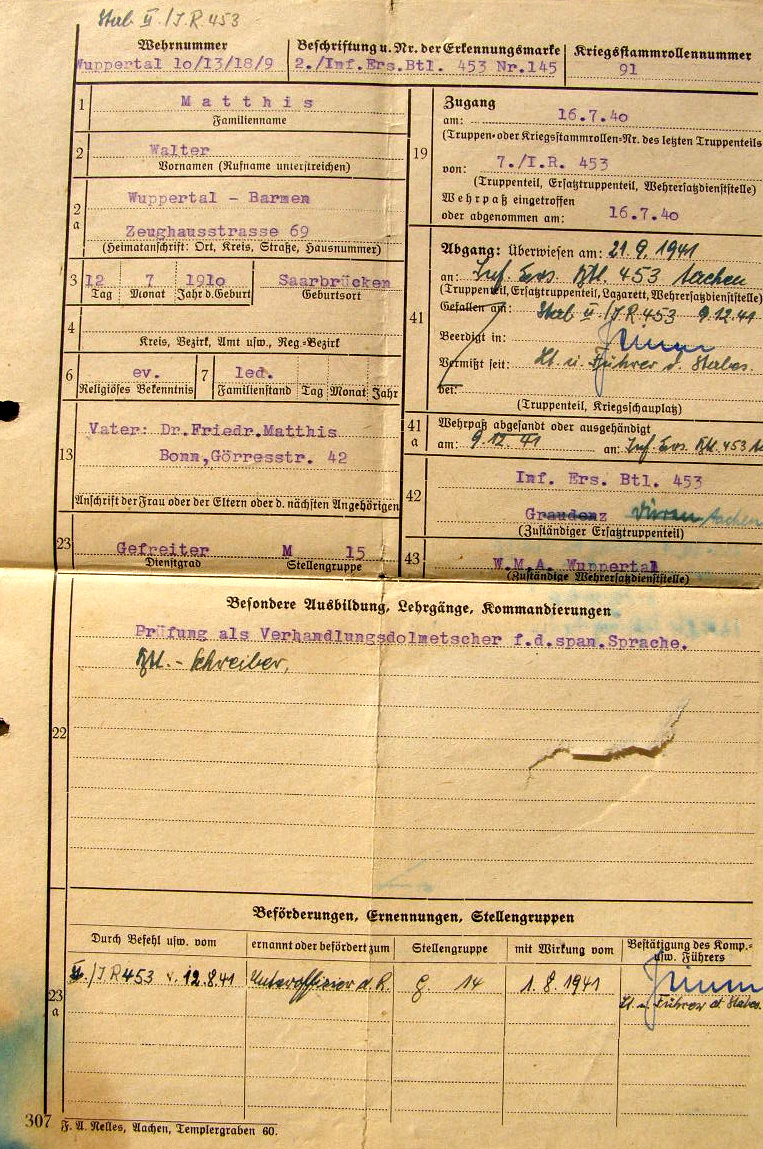 Stab II/J.R 453
Wehrnummer
Wuppertal 1o/13/18/9
Beschriftung u. Nr. der Erkennungsmarke
2./Inf.Ers.Btl. 453 Nr.145
Kriegsstammrollennummer
91
1
Matthis
Familienname
2
Walter
Vornamen (Rufname unterstreichen)
2a
Wuppertal - Barmen
Zeughausstrasse 69
(Heimatanschrift: Ort, Kreis, Straße, Hausnummer)
3
12 7 191o Saarbrücken
Tag Monat Jahr d. Geburt Geburtsort
4
Kreis, Bezirk, Amt usw., Reg.-Bezirk
6
ev.
Religiöses Bekenntnis
7
led.
Familienstand Tag Monat Jahr
13
Vater: Dr.Friedr.Matthis
Bonn,Görresstr. 42
Anschrift der Frau oder der Eltern oder d. nächsten Angehörigen
23
Gefreiter M 15
Dienstgrad Stellengruppe
19
Zugang
am: 16.7.4o
(Truppen- oder Kriegsstammrollen-Nr. des letzten Truppenteils
von: 7./I.R. 453
(Truppenteil, Ersatztruppenteil, Wehrersatzdienststelle)
Wehrpaß eingetroffen
oder abgenommen am: 16.7.4o
41
Abgang: Überwiesen am: 21.9.1941
an: Inf. Ers. Btl. 453 Aachen
(Truppenteil, Ersatztruppenteil, Lazarett, Wehrersatzdienststelle)
Gefallen am: Stab II/J.R 453 9.12.41
Beerdigt in:
Vermißt seit: Lt. u. Führer d. Stabes.
bei:
(Truppenteil, Kriegsschauplatz)
41a
Wehrpaß abgesandt oder ausgehändigt
am: 9.12.41 an: Inf. Ers. Btl. 453
42
Inf. Ers. Btl. 453
Graudenz Düren Aachen
(Zuständiger Ersatztruppenteil)
43
W.M.A. Wuppertal
(Zuständige Wehrersatzdienststelle)
22
Besondere Ausbildung, Lehrgänge, Kommandierungen
Prüfung als Verhandlungsdolmetscher f.d.span.Sprache.
Btl.-Schreiber.
23a
Beförderungen, Ernennungen, Stellengruppen
Durch Befehl usw. vom
ernannt oder befördert zum
Stellengruppe
mit Wirkung vom
Bestätigung des Komp.- usw. Führers
II./J.R 453 v. 12.8.41
Unteroffizier d. R.
G 14
1.8.1941
Lt. u. Führer d. Stabes.
307 F. A. Nelles, Aachen, Templergraben 60.